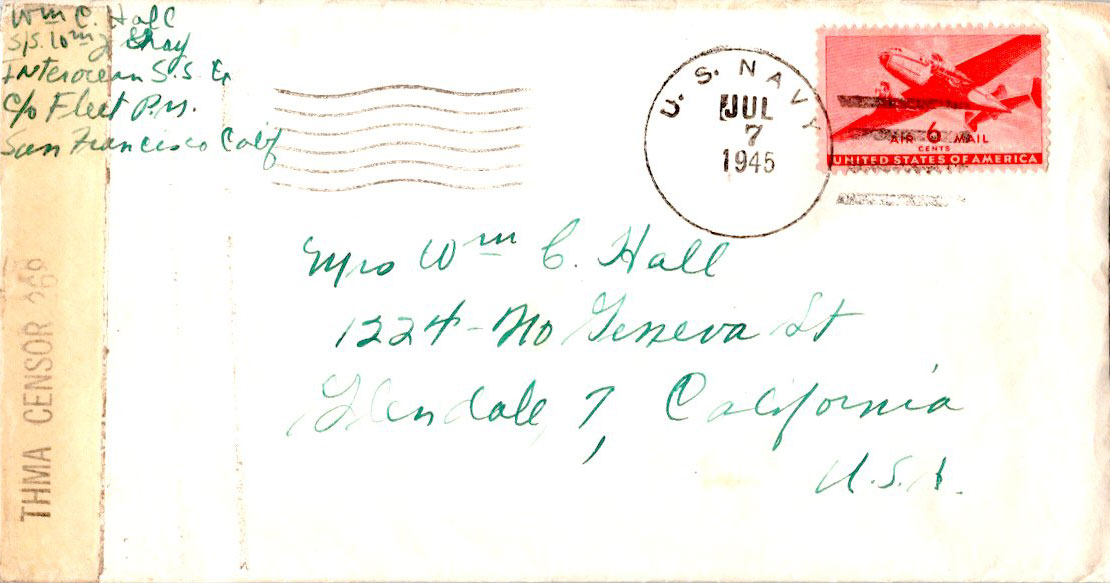 Wm C. Hall
S/S. Wm J Gray
Interocean S.S. Co
c/o Fleet P.M.
San Francisco Calif
U.S. NAVY
JUL
7
1945
AIR 6 MAIL
CENTS
UNITED STATES OF AMERICA
Mrs Wm C. Hall
1224-No Geneva St
Glendale, 7, California
U.S.A.
THMA CENSOR 269